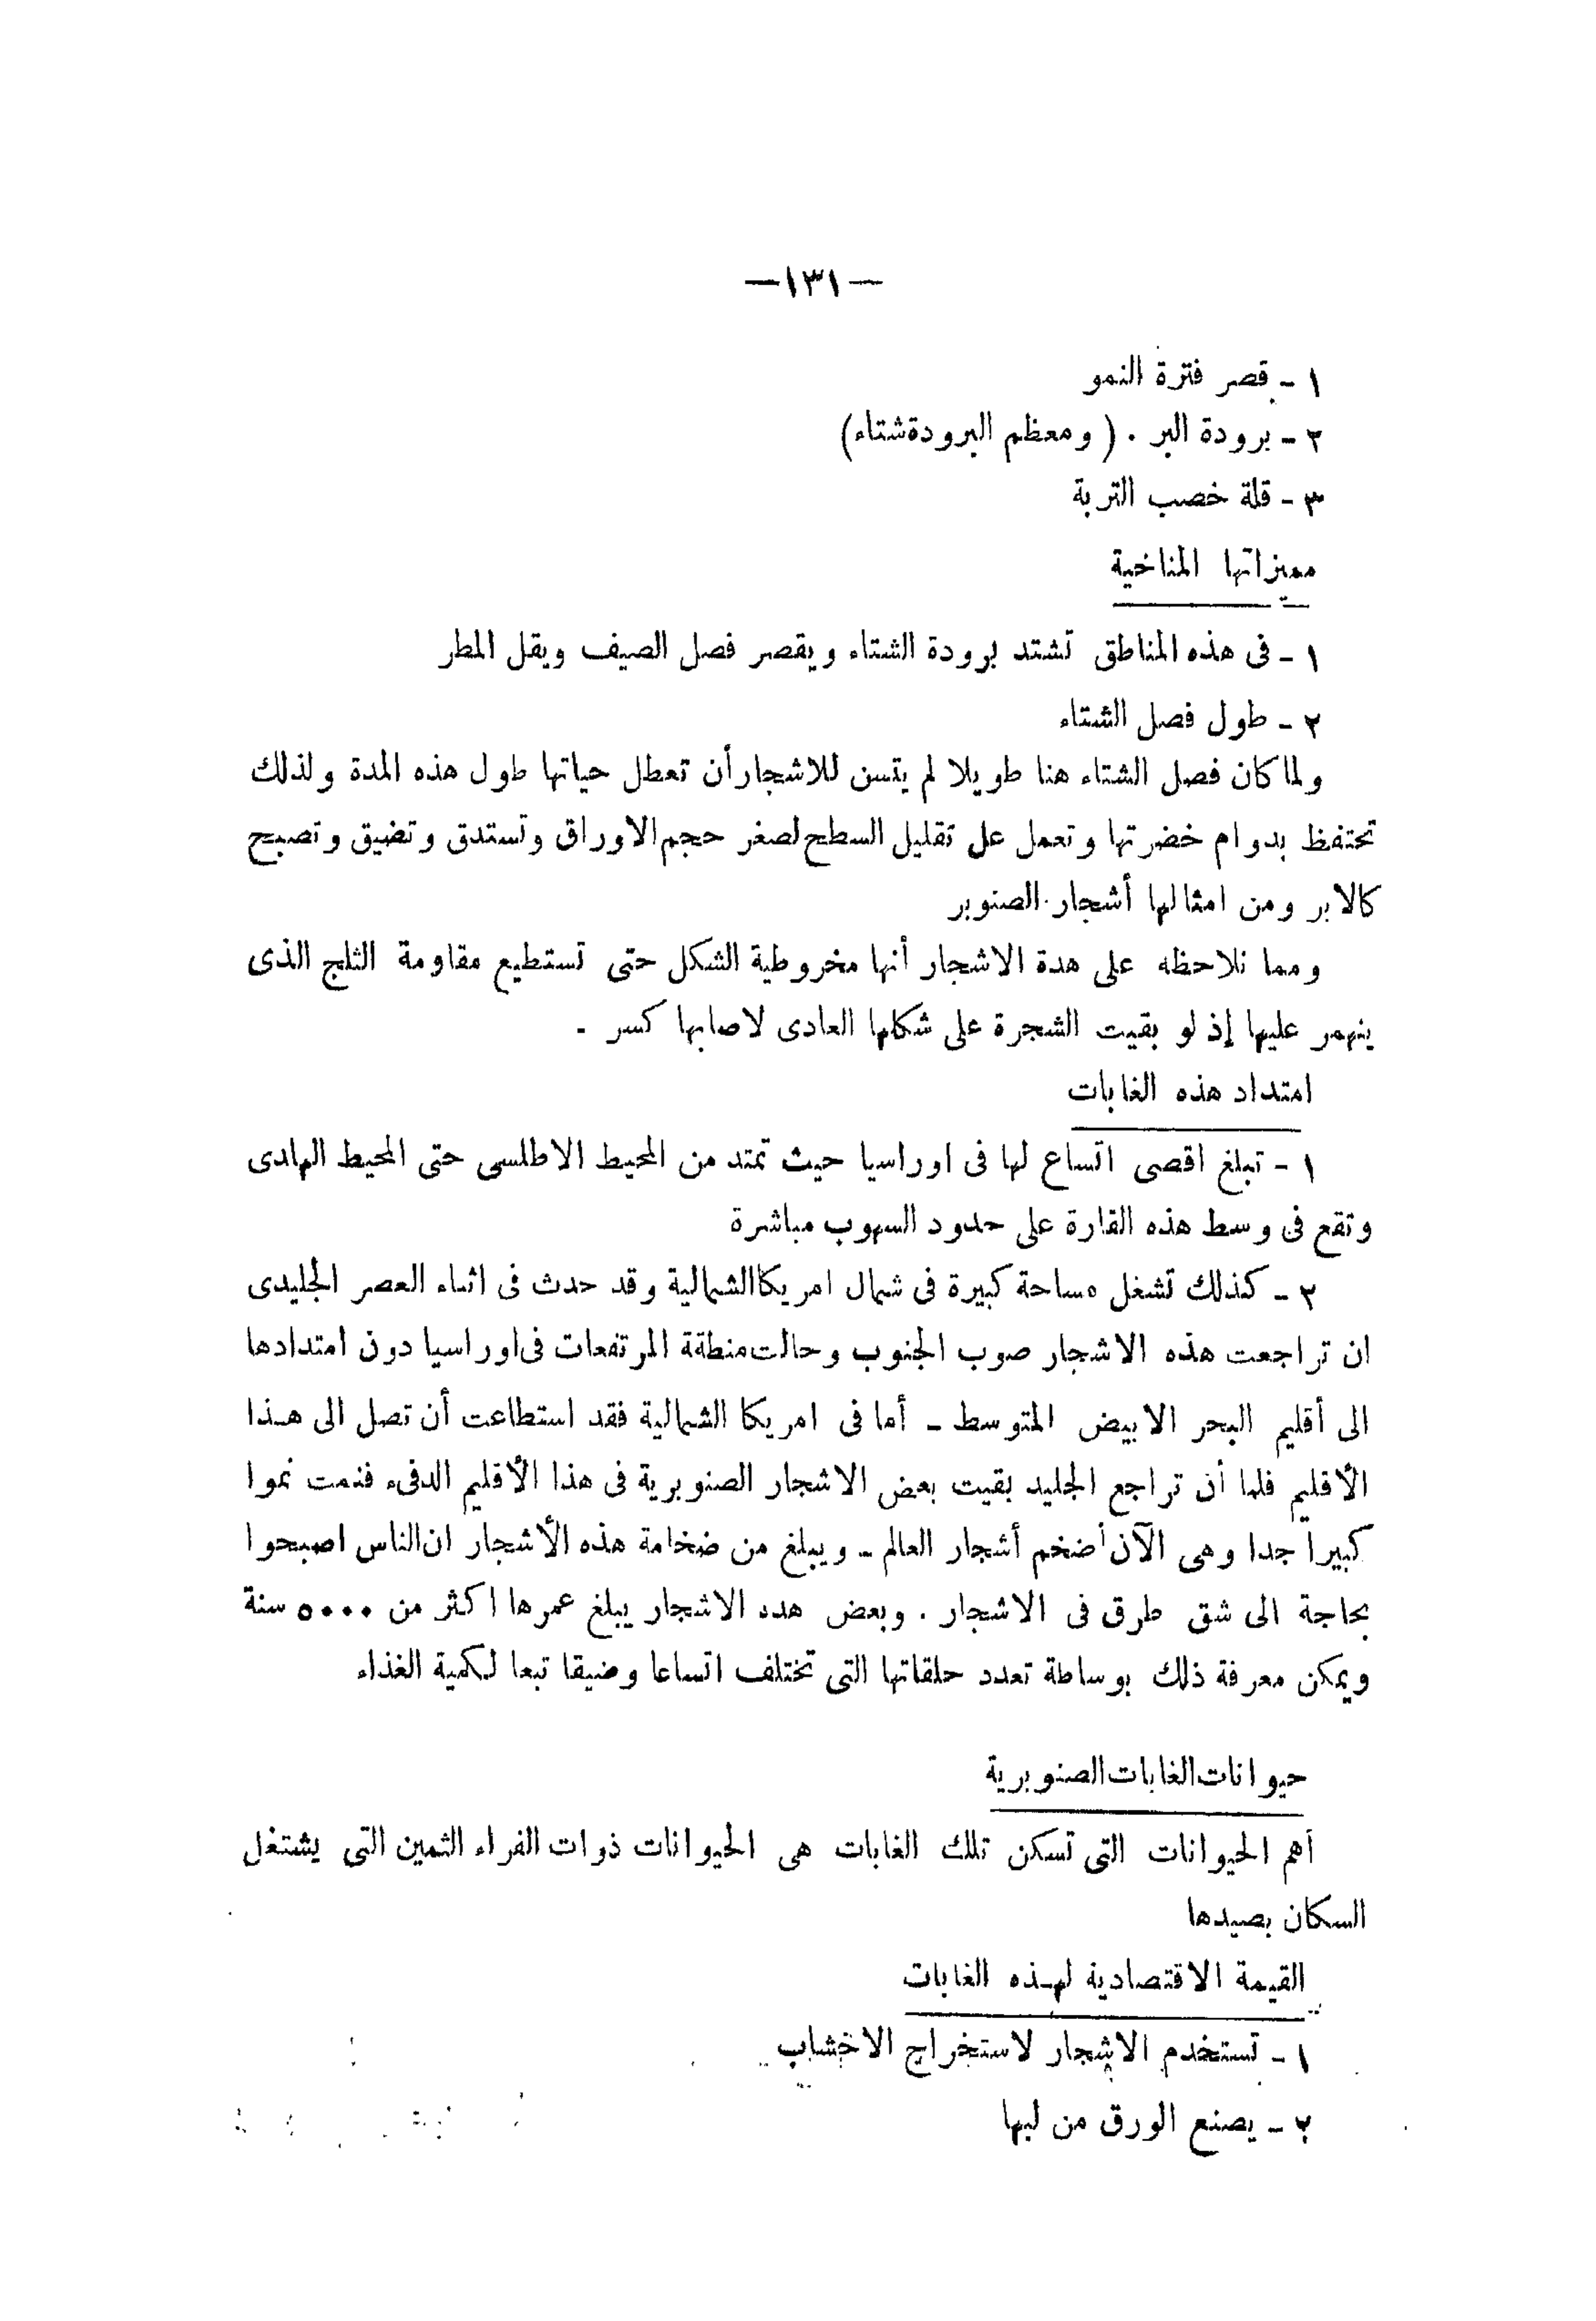 —١٣١—
١ - قصر فترة النمو
٢ - برودة البر . ( ومعظم البرودة شتاء)
٣ - قلة خصب التربة
مميزاتها المناخية
١ - فى هذه المناطق تشتد برودة الشتاء ويقصر فصل الصيف ويقل المطر
٢ - طول فصل الشتاء
ولما كان فصل الشتاء هنا طويلا لم يتسن للاشجار أن تعطل حياتها طول هذه المدة ولذلك
تحتفظ بدوام خضرتها وتعمل على تقليل السطح لصغر حجم الاوراق وتستدق وتضيق وتصبح
كالابر ومن امثالها أشجار الصنوبر
ومما نلاحظه على هدة الاشجار أنها مخروطية الشكل حتى تستطيع مقاومة الثلج الذى
ينهمر عليها إذ لو بقيت الشجرة على شكلها العادى لاصابها كسر -
امتداد هذه الغابات
١ - تبلغ اقصى اتساع لها فى اوراسيا حيث تمتد من المحيط الاطلسى حتى المحيط الهادى
وتقع فى وسط هذه القارة على حدود السهوب مباشرة
٢ - كذلك تشغل مساحة كبيرة فى شمال امريكا الشمالية وقد حدث فى اثناء العصر الجليدى
ان تراجعت هذه الاشجار صوب الجنوب وحالت منطقة المرتفعات فى اوراسيا دون امتدادها
الى أقليم البحر الابيض المتوسط - أما فى امريكا الشمالية فقد استطاعت أن تصل الى هـذا
الأقليم فلما أن تراجع الجليد بقيت بعض الاشجار الصنوبرية فى هذا الأقليم الدفىء فنمت نموا
كبيرا جدا وهى الآن أضخم أشجار العالم - ويبلغ من ضخامة هذه الأشجار ان الناس اصبحوا
بحاجة الى شق طرق فى الاشجار . وبعض هده الاشجار يبلغ عمرها اكثر من ٥٠٠٠ سنة
ويمكن معرفة ذلك بوساطة تعدد حلقاتها التى تختلف اتساعا وضيقا تبعا لكمية الغذاء
حيوانات الغابات الصنوبرية
أهم الحيوانات التى تسكن تلك الغابات هى الحيوانات ذوات الفراء الثمين التى يشتغل
السكان بصيدها
القيمة الاقتصادية لهـذه الغابات
١ - تستخدم الاشجار لاستخراج الاخشاب
٢ - يصنع الورق من لبها